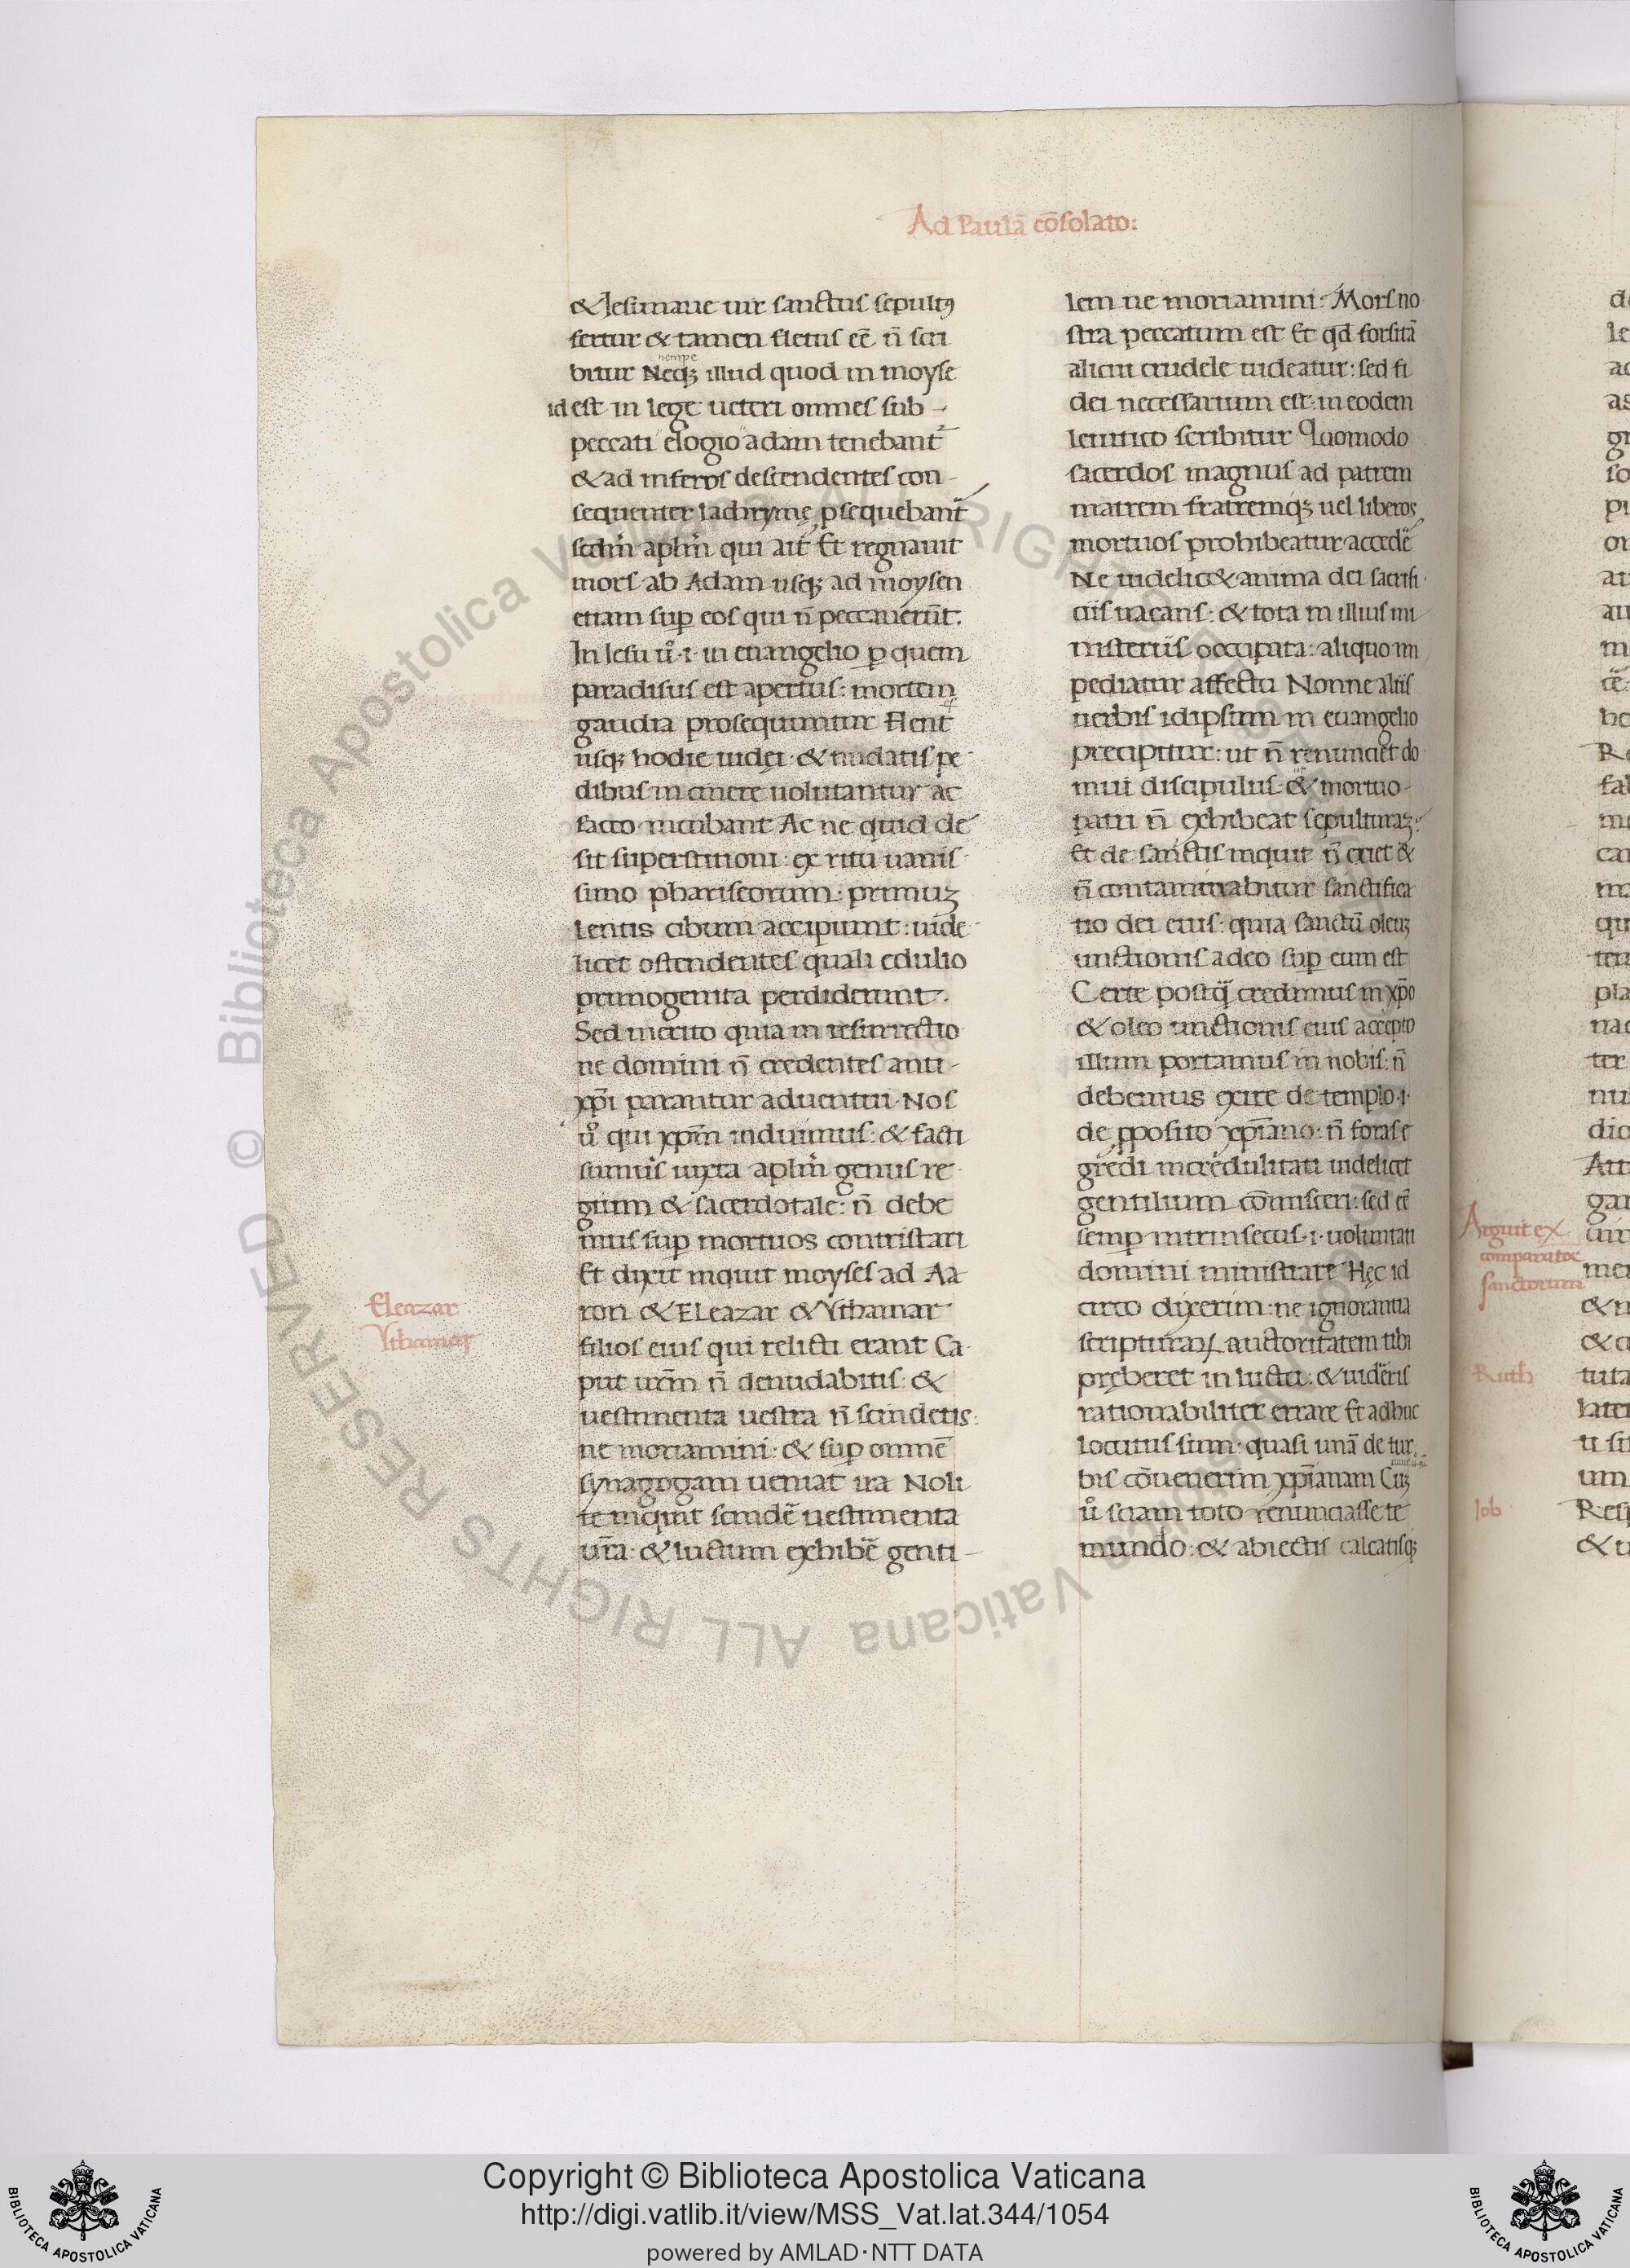 Ad Paulā cōsolato:
& Iesu naue uir sanctus sepultꝰ
fertur & tamen fletus eē n̄ scri
bitur Neqꝫ illud quod in moyse
nempe
id est in lege ueteri omnes sub -
peccati elogio adam tenebant᷑
& ad inferos descendentes con-
sequenter lachrymę ꝓsequebant᷑
scdm̄ aplm̄ qui ait Et regnauit
mors ab Adam usqꝫ ad moysen
etiam suꝑ eos qui n̄ peccauerūt.
In Iesu u͛o ·i· in euangelio ꝑ quem
paradisus est apertus: mortem
gaudia prosequuntur Flent
usqꝫ hodie iudei · & nudatis pe
dibus in cinere uolutantur ac
sacco incubant Ac ne quid de
sit superstitioni: ex ritu uanis-
simo phariseorum: primuꝫ
lentis cibum accipiunt: uide-
licet ostendentes quali edulio
primogenita perdiderunt.
Sed merito quia in resurrectio
ne domini n̄ credentes anti-
xp̄i parantur aduentui. Nos
u͛o qui xp̄m induimus: & facti
sumus iuxta aplm̄ genus re-
gium & sacerdotale: n̄ debe
mus suꝑ mortuos contristari
Et dixit inquit moyses ad Aa
ron & Eleazar & Ythamar
filios eius qui relicti erant Ca-
put ur̄m n̄ denudabitis: &
uestimenta uestra n̄ scindetis:
ne moriamini: & suꝑ omnē
synagogam ueniat ira Noli
te inquit scindē uestimenta
ur̄a: & luctum exhibē genti-
Eleazar
Ythamar
lem ne moriamini: Mors no
stra peccatum est Et qd̄ forsitā
alicui crudele uideatur: sed fi
dei necessarium est: in eodem
leuitico scribitur Quomodo
sacerdos magnus ad patrem
matrem fratremqꝫ uel liberos
mortuos prohibeatur accedē
Ne uidelic& anima dei sacrifi-
ciis uacans: & tota in illius mi
nisteriis occupata: aliquo im
pediatur affectu Nonne aliis
uerbis idipsum in euangelio
precipitur: ut n̄ renunciet do
mui discipulus: & mortuo-
patri n̄ exhibeat sepulturaꝫ:
Et de sanctis inquit n̄ exiet &
n̄ contaminabitur sanctifica
tio dei eius: quia sanctū oleuꝫ
unctionis a deo suꝑ eum est
Certe postq̄ credimus in xp̄o
& oleo unctionis eius accepto
illum portamus in nobis: n̄
debemus exire de templo ·i·
de ꝓposito xp̄iano: n̄ foras e
gredi incredulitati uidelicet
gentilium cōmisceri: sed eē
semꝑ intrinsecus ·i· uoluntati
domini ministrare Hęc id
circo dixerim: ne ignorantia
scripturaꝝ auctoritatem tibi
pręberet in luctu: & uideris
rationabiliter errare Et adhuc
locutus sum: quasi unā de tur
bis cōuenerim xp̄ianam Cuꝫ
u͛o sciam toto renunciasse te
mundo: & abiectis calcatisqꝫ
Arguit ex
comparatōe
sanctorum
Ruth
Iob
Copyright © Biblioteca Apostolica Vaticana
http://digi.vatlib.it/view/MSS_Vat.lat.344/1054
powered by AMLAD·NTT DATA
© Biblioteca Apostolica Vaticana ALL RIGHTS RESERVED
BIBLIOTECA APOSTOLICA VATICANA
BIBLIOTECA APOSTOLICA VATICANA